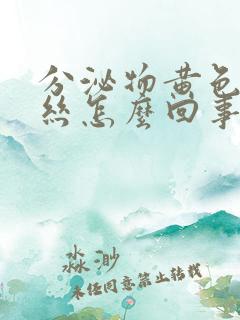 分泌物黄色
丝怎麼回事
淼渺
未经同意禁止转载